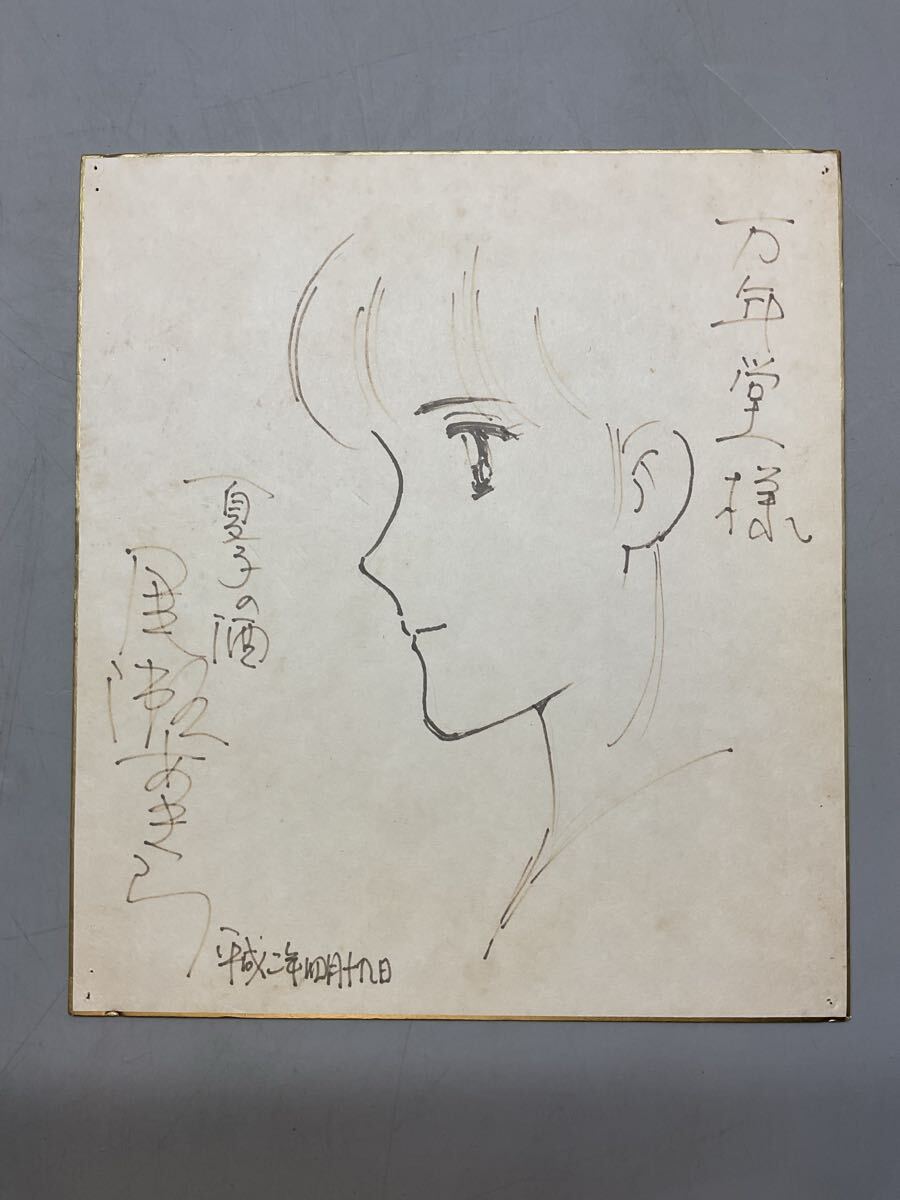 万年堂様
夏子の酒
尾瀬あきら
平成二年四月十九日